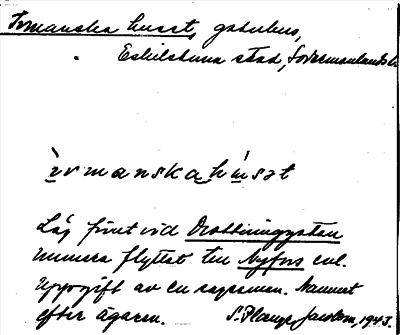 Ivmanska huset, gatuhus,
Eskilstuna stad, Södermanlands l.
ìvmanskahùsət
Låg förut vid Drottninggatan
numera flyttat till Nyfors enl.
uppgift av en sagesman. Namnet
efter ägaren. S. Jacobson, 1943.